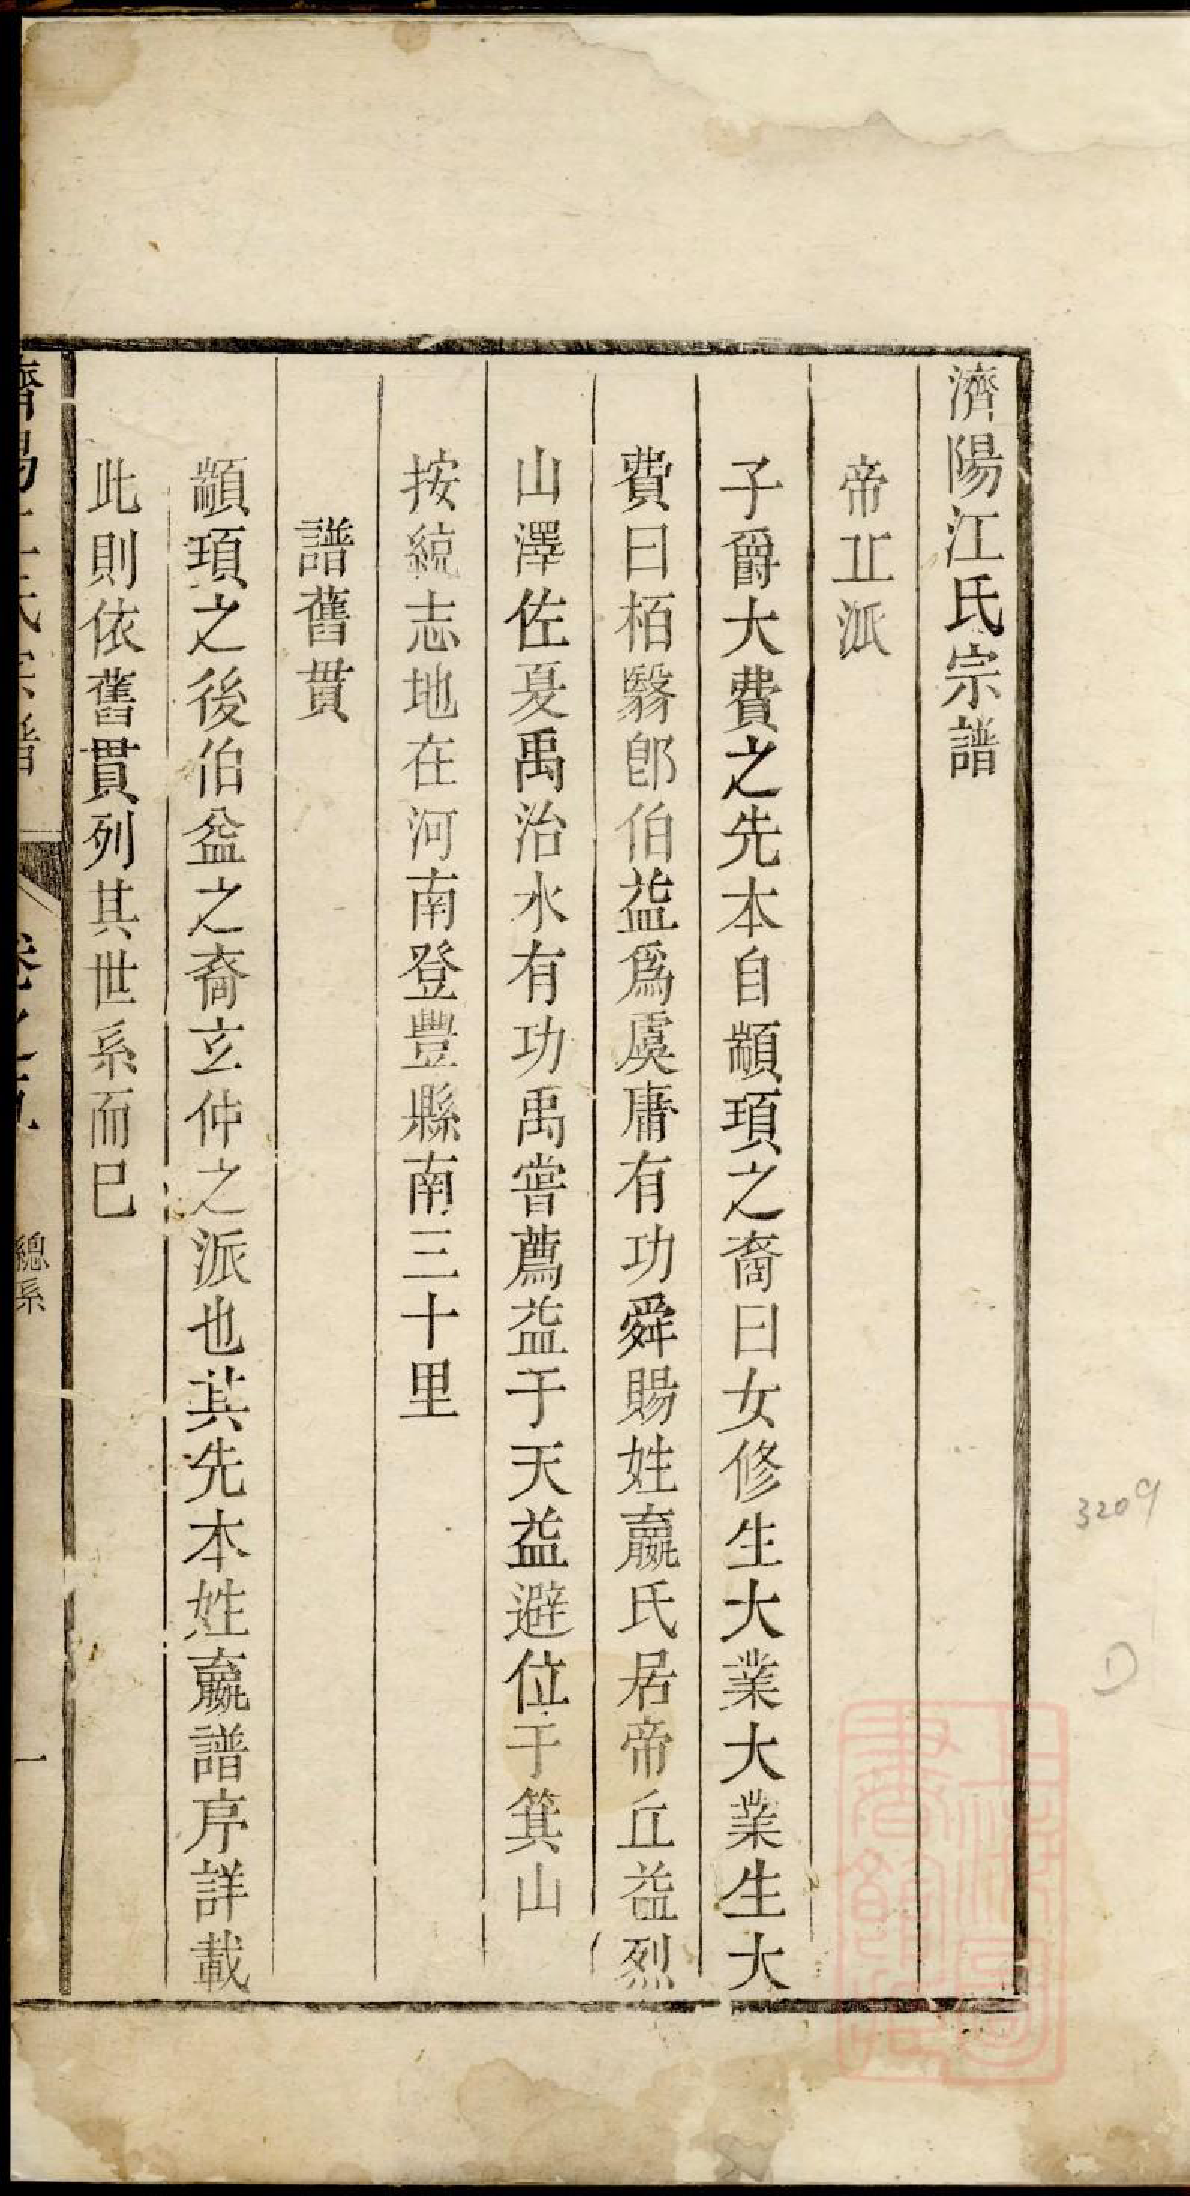 濟陽江氏宗譜
帝丠派
子爵大費之先本自顓頊之裔曰女修生大業大業生大
費曰栢翳卽伯益爲虞庸有功舜賜姓嬴氏居帝丘益烈
山澤佐夏禹治水有功禹嘗薦益于天益避位于箕山
按統志地在河南登豐縣南三十里
譜舊貫
顓頊之後伯益之裔玄仲之派也其先本姓嬴譜序詳載
此則依舊貫列其世系而巳
濟陽江氏宗譜
卷之
總系
一
3209
D
上海圖書館藏